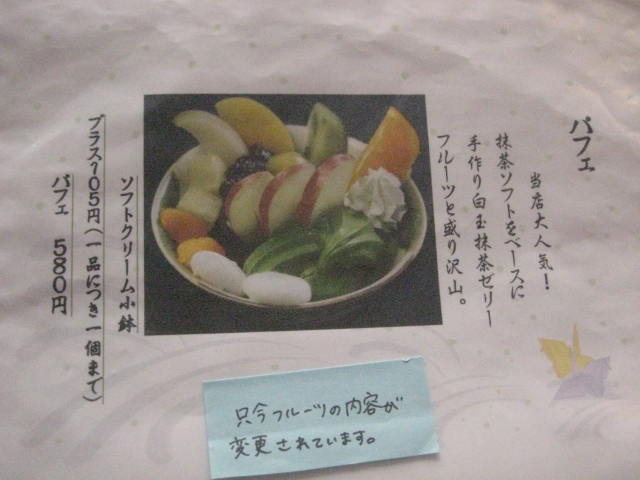 パフェ
当店大人気！
抹茶ソフトをベースに
手作り白玉抹茶ゼリー
フルーツと盛り沢山。
ソフトクリーム小鉢
プラス105円（一品につき一個まで）
パフェ 580円
只今フルーツの内容が
変更されています。